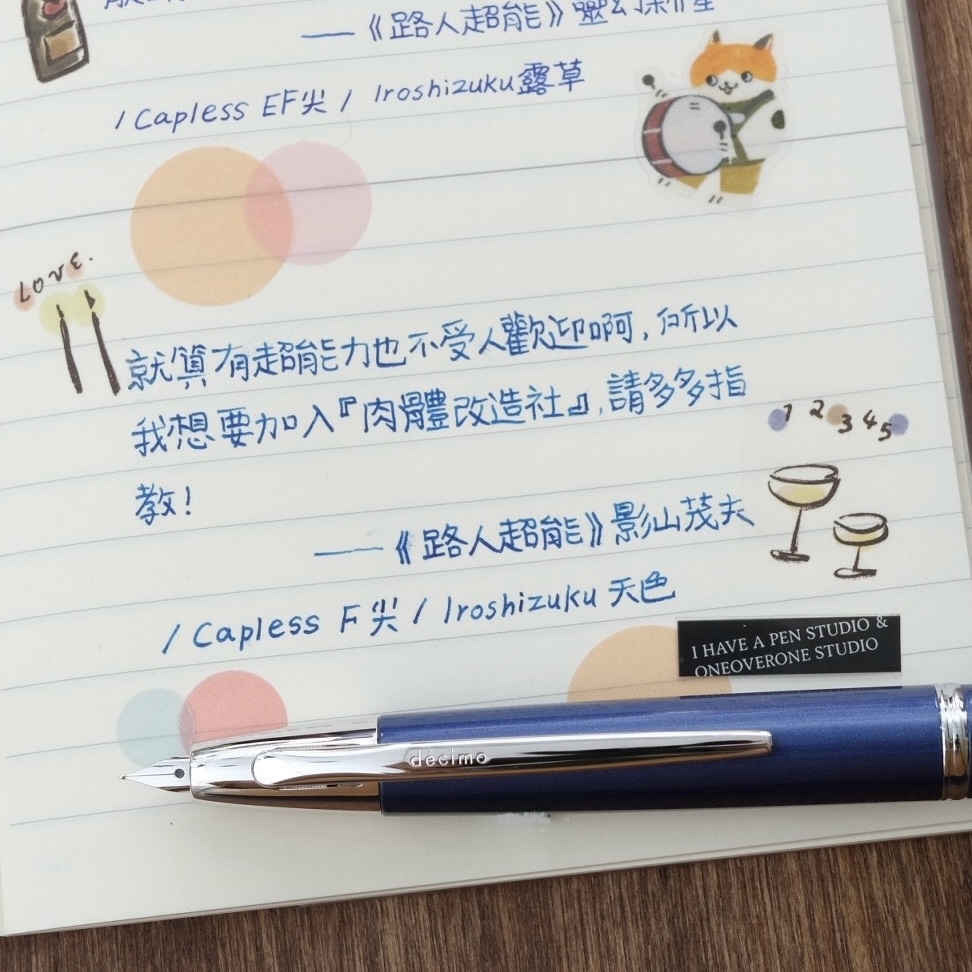 ——《路人超能》靈幻新隆
/ Capless EF尖 / Iroshizuku露草
LOVE.
就算有超能力也不受人歡迎啊,所以
我想要加入『肉體改造社』,請多多指
教!
1 2 3 4 5
——《路人超能》影山茂夫
/ Capless F尖 / Iroshizuku 天色
I HAVE A PEN STUDIO &
ONEOVERONE STUDIO
décimo